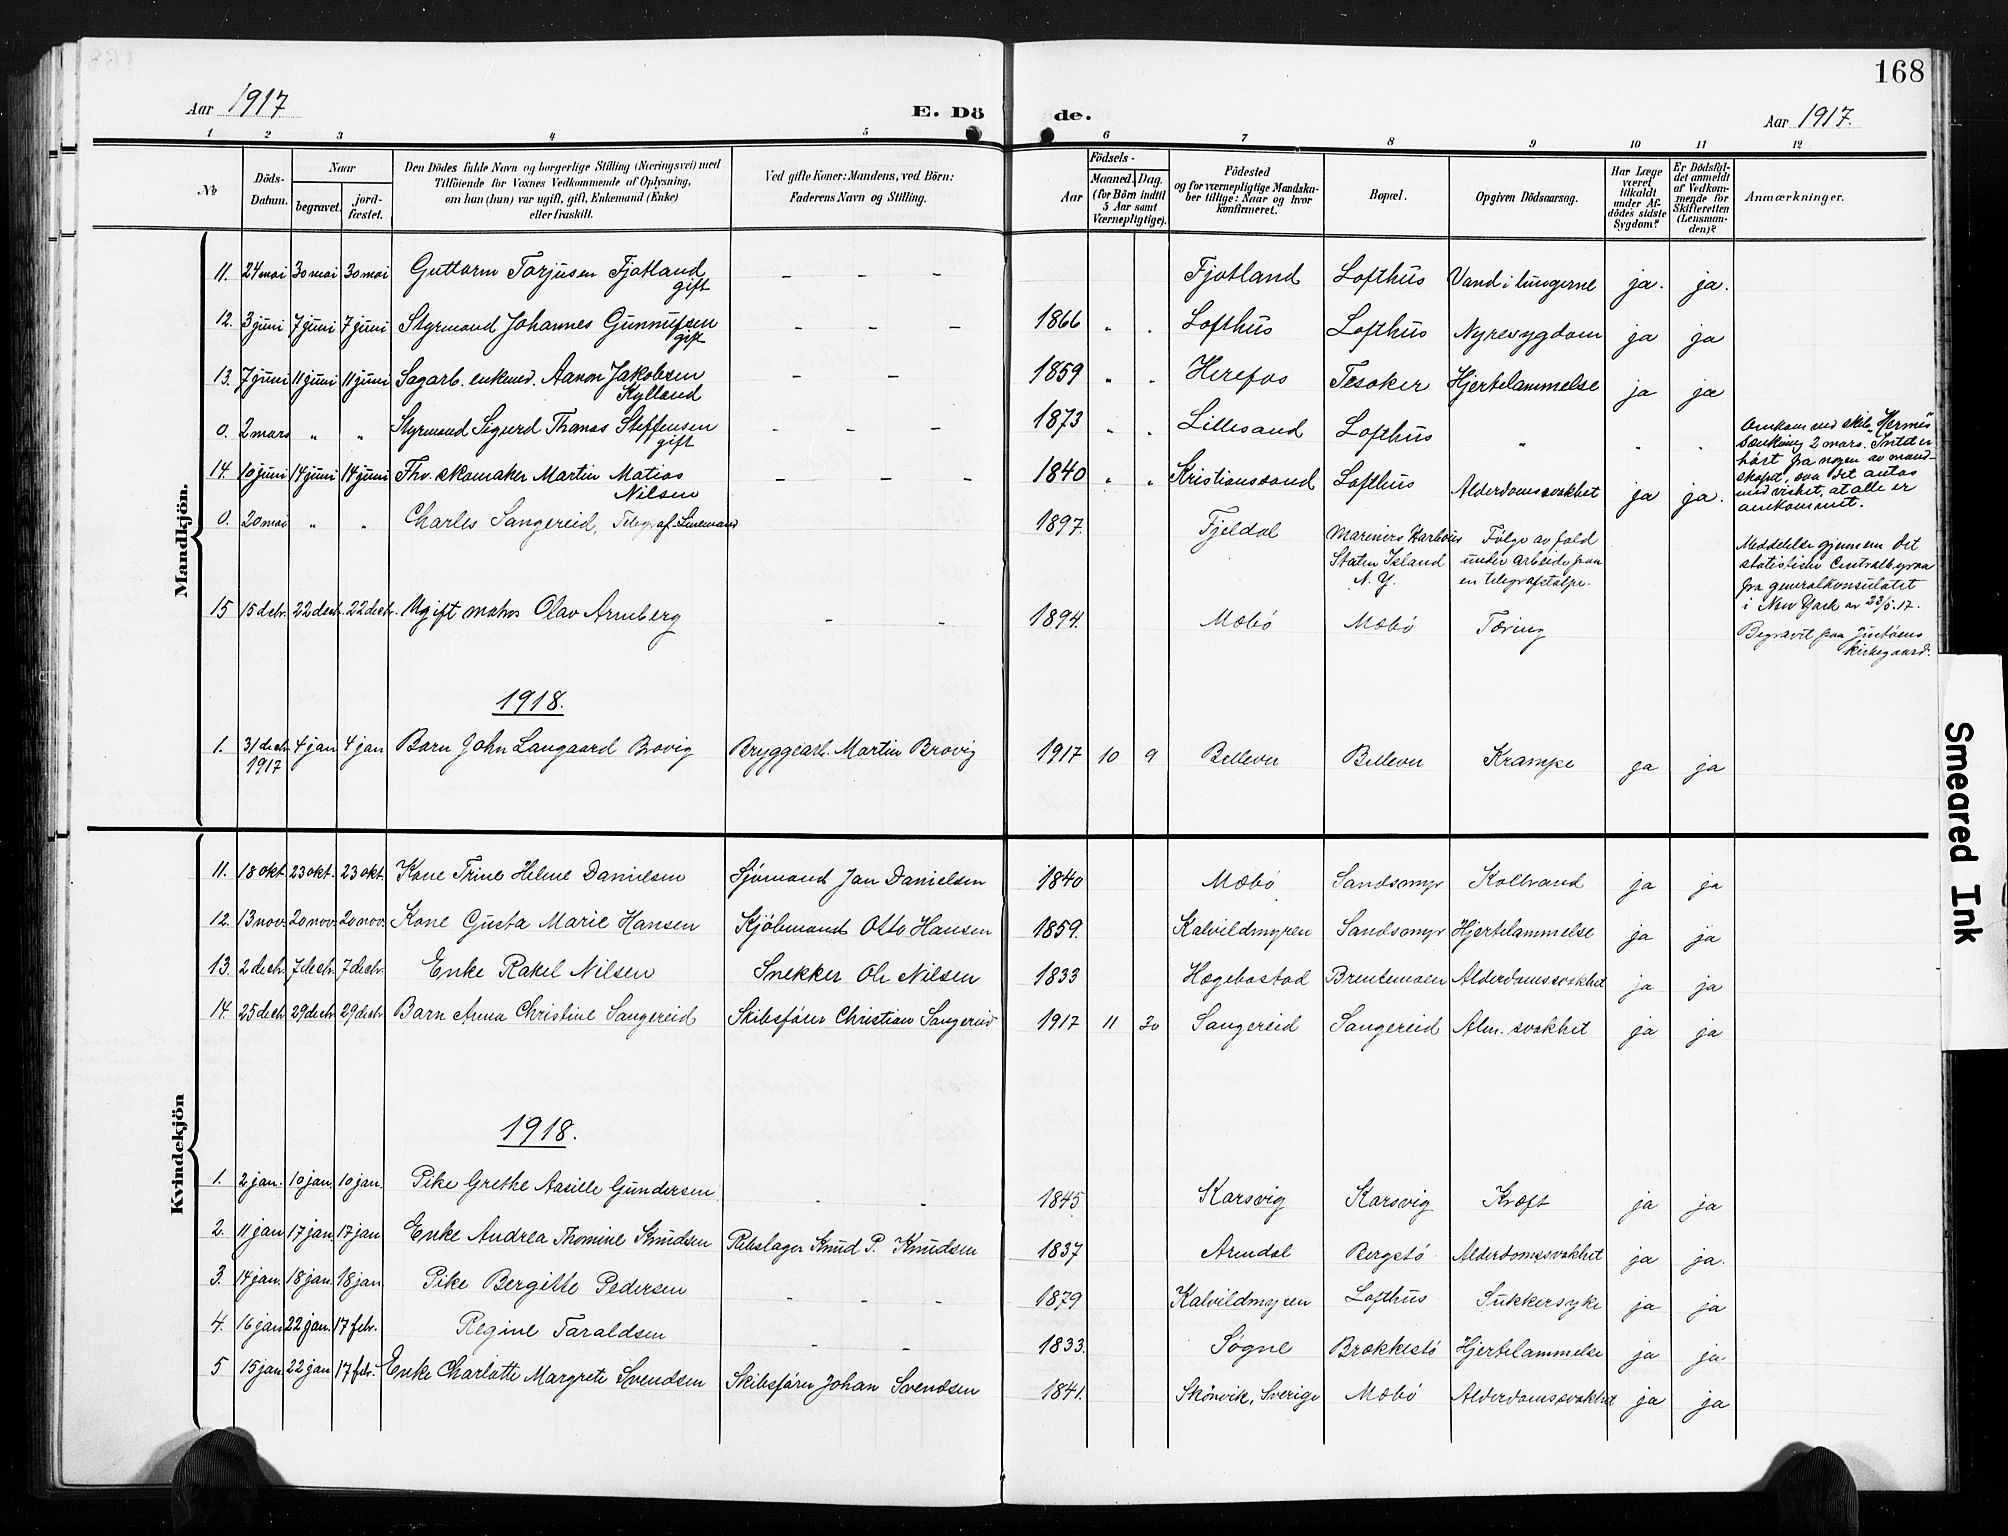 168
Aar 1917
E. Dö de.
Aar 1917.
1 2 3 4 5 6 7 8 9 10 11 12
№
Döds-Datum.
Naar
begravet.
jord-fæstet.
Den Dödes fulde Navn og borgerlige Stilling (Næringsvei) med
Tilföiende for Voxnes Vedkommende af Oplysning,
om han (hun) var ugift, gift, Enkemand (Enke)
eller fraskilt.
Ved gifte Koner: Mandens, ved Börn:
Faderens Navn og Stilling.
Födsels-
Aar
Maaned. Dag.
(for Börn indtil
5 Aar samt
Værnepligtige).
Födested
og for værnepligtige Mandska-
ber tillige: Naar og hvor
konfirmeret.
Bopæl.
Opgiven Dödsaarsag.
Har Læge
været
tilkaldt
under Af-
dödes sidste
Sygdom?
Er Dödsfal-
det anmeldt
af Vedkom-
mende for
Skifteretten
(Lensman-
den)?
Anmærkninger.
Mandkjön.
11. 24 mai 30 mai 30 mai Guttorm Torjusen Fjotland gift - - - Fjotland Lofthus Vand i lungerne ja. ja.
12. 3 juni 7 juni 7 juni Styrmand Johannes Gunnufsen gift - - - 1866 " . Lofthus Lofthus Nyresygdom ja ja
13. 7 juni 11 juni 11 juni Sagarb. enkmd. Aanon Jakobsen Kylland - - 1859 " . Herefos Tesaker Hjertelammelse ja ja
0. 2 mars " " Styrmand Sigurd Thomas Steffensen gift - - - 1873 " . Lillesand Lofthus " . .
Omkom med skib "Hermes"
sænkning 2 mars. Intet er
hört fra nogen av mand-
skapet, saa det antas
med vished, at alle er
omkommet.
14. 10 juni 14 juni 14 juni Fhv. skomaker Martin Matias Nilsen - - - 1840 " " Kristianssand Lofthus Alderdomssvakhet ja ja.
0. 20 mai " " Charles Sangereid, Telegraf-Linemand 1897. Fjeldal Mariners Harbour Staten Island N. Y. Følge av fald under arbeide paa en telegrafstolpe.
Meddelelse gjennem det
statistiske Centralbyraa
fra generalkonsulatet
i New York av 23/5. 17.
15 15 decbr. 22 decbr. 22 decbr. Ugift matros Olav Arnberg - - 1894. Mæbø Mæbø Tæring
Begravet paa Justøens
kirkegaard.
1918.
1. 31 decbr 1917 4 jan 4 jan Barn John Langaard Brovig Bryggearb. Martin Brovig 1917 10 9 Bellevu Bellevu Krampe ja ja
Kvindekjön
11. 18 okt 23 okt. 23 okt. Kone Trine Helene Danielsen Sjømand Jan Danielsen 1840 Mæbø Sandsmyr Koldbrand ja ja
12. 13 nov. 20 nov. 20 nov. Kone Gusta Marie Hansen Kjøbmand Otto Hansen 1859. Kalvildmyren Sandsmyr Hjertelammelse ja ja
13. 2 decbr. 7 decbr. 7 decbr. Enke Rakel Nilsen Snekker Ole Nilsen 1833 Hægebostad Brentemoen Alderdomssvakhet ja ja
14. 25 decbr 29 decbr 29 decbr Barn Anna Christine Sangereid Skibsfører Christian Sangereid 1917 11 30 Sangereid Sangereid Alm. svakhet ja ja
1918.
1. 2 jan. 10 jan. 10 jan. Pike Grethe Aasille Gundersen . . 1845 Karsvig Karsvig Kræft ja ja
2. 11 jan 17 jan 17 jan Enke Andrea Thomine Knudsen Rebslager Knud P. Knudsen 1837 Arendal Bergstø Alderdomssvakhet ja ja.
3. 14 jan. 18 jan. 18 jan. Pike Bergitte Pedersen - - - 1879 Kalvildmyren Lofthus Sukkersyke ja ja
4. 16 jan 22 jan. 17 febr. Regine Taraldsen - - 1833. Søgne Brækkestø Hjertelammelse ja ja
5 15 jan. 22 jan 17 febr. Enke Charlotte Margrete Svendsen Skibsfører Johan Svendsen 1841. Skönvik, Sverige Mæbø Alderdomssvakhet ja ja
Smeared Ink